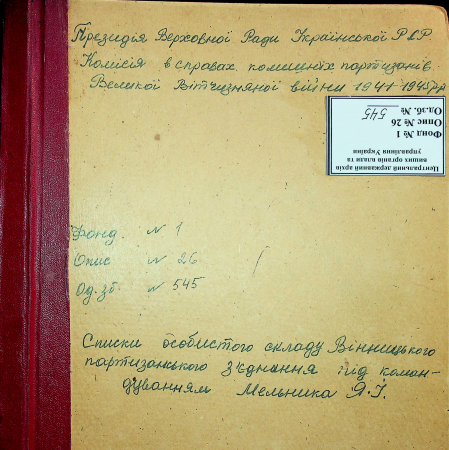 Президія Верховної Ради Української РСР
Комісія в справах колишніх партизанів
Великої Вітчизняної війни 1941-1945 рр
Центральний державний архів
вищих органів влади та
управління України
Фонд № 1
Опис № 26
Од.зб. № 545
Фонд. N 1
Опис N 26
Од.зб. N 545
Списки особистого складу Вінницького
партизанського з'єднання під коман-
дуванням Мельника Я.І.